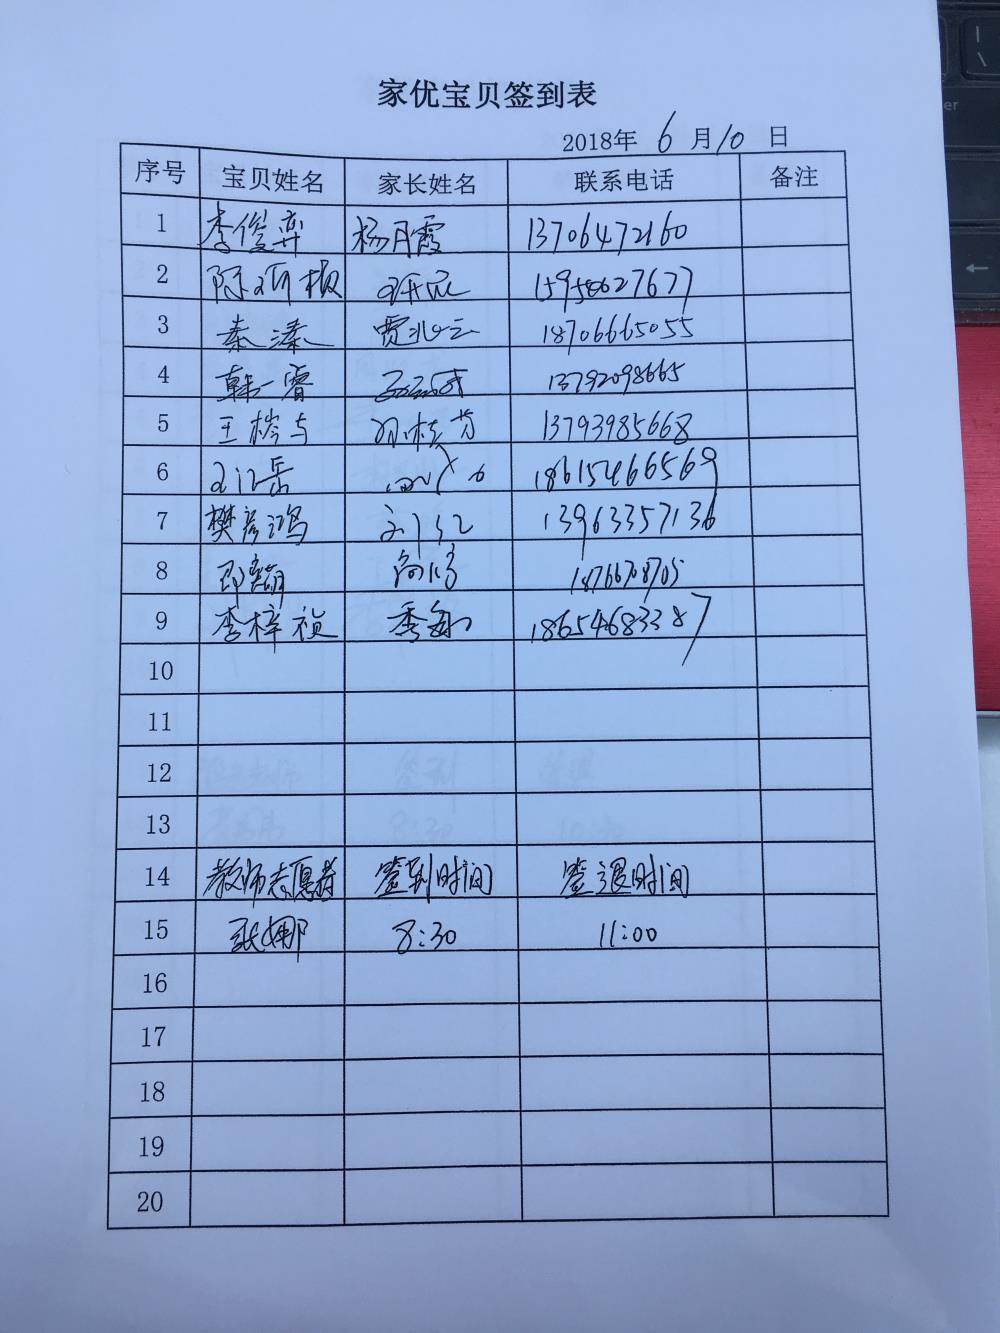 家优宝贝签到表
2018年 6 月 10 日
序号 宝贝姓名 家长姓名 联系电话 备注
1 李俊弈 杨月霞 13706472160
2 15958627677
3 秦溱 贾兆云 18706665055
4 韩一睿 13792098665
5 王梣与 邓桂芳 13793985668
6 18615466569
7 樊彦鸿 13963357136
8 邵翰
9 李梓祯 季 18654683387
10
11
12
13
14 教师志愿者 签到时间 签退时间
15 张娜 8:30 11:00
16
17
18
19
20